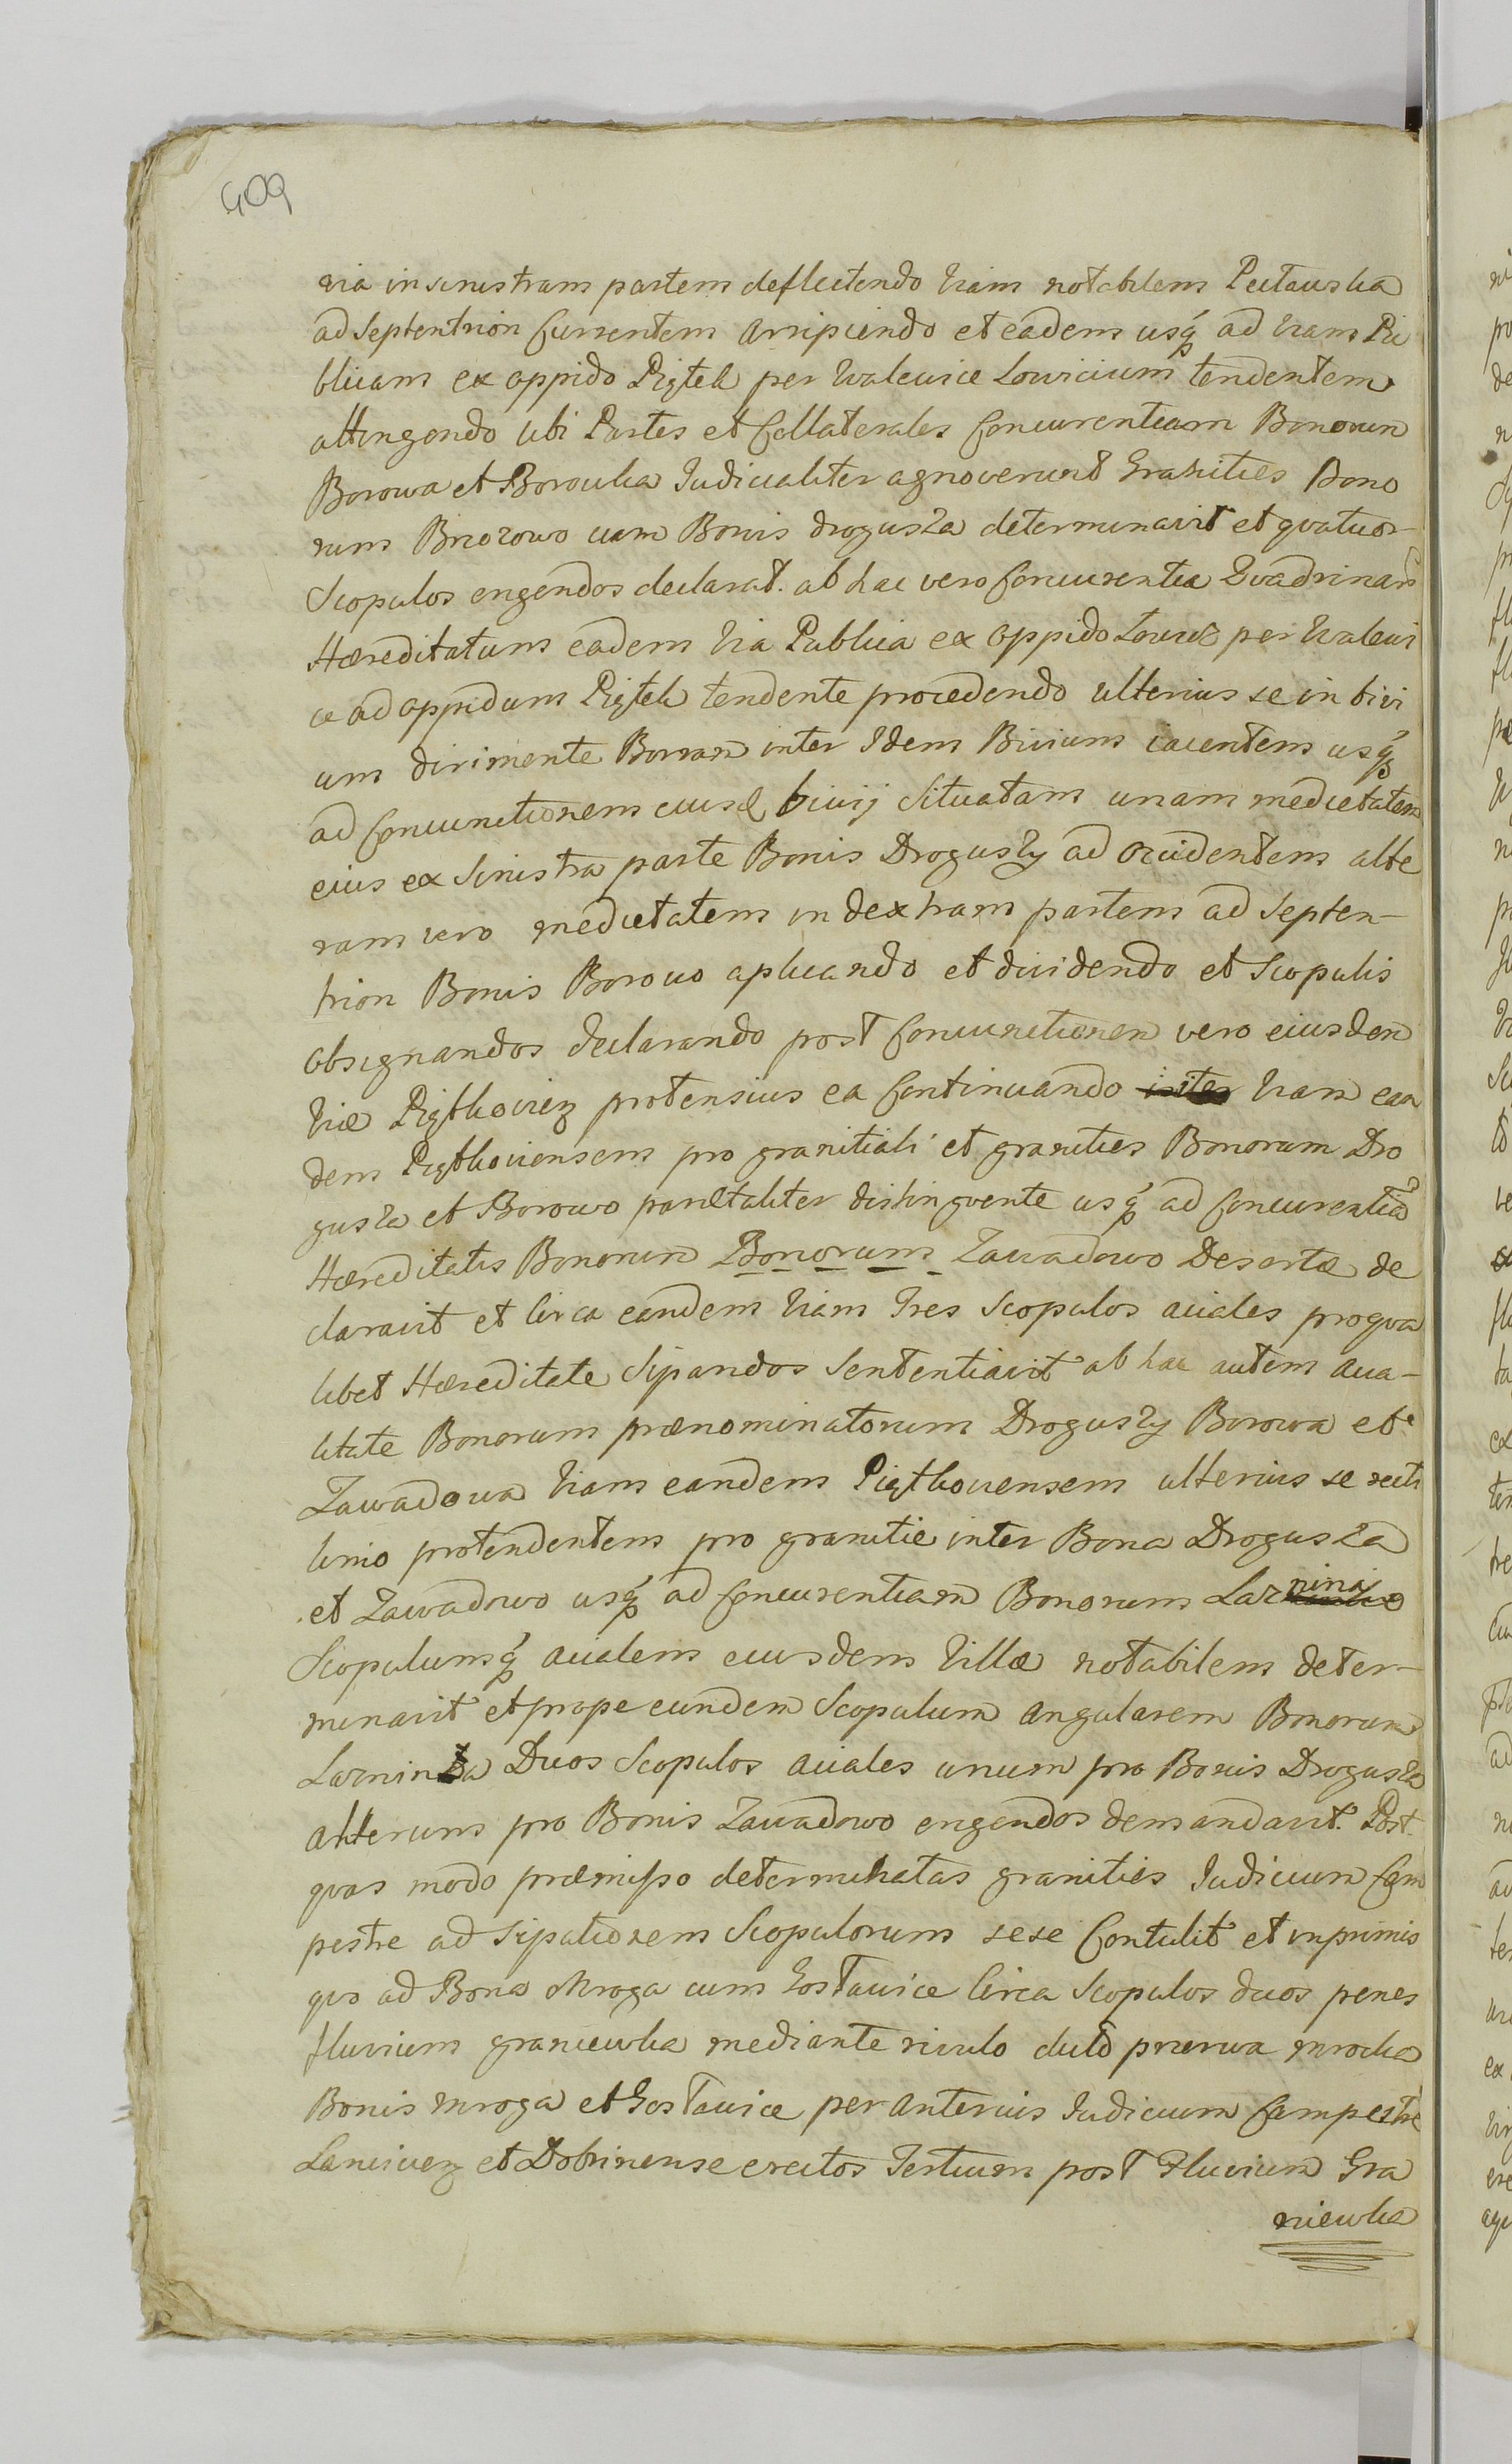 409
via in sinistram partem deflectendo Viam notabilem Piutauska
ad Septentrion Currentem Arripiendo et eadem usq ad Viam Pu
blicam ex oppido Piątek per Walewice Lowicium tendentem
attingendo ubi Partes et Collaterales Concurentiam Bonorum
Borowa et Borowka Judicialiter agnoverunt Granities Bono
rum Brzozowo cum Bonis Drogusza determinavit et qvatuor
Scopulos erigendos declarat. ab hac vero Concurentia Qvadrinar
Hæreditatum eadem Via Publica ex oppido Lowicz per Walewi
ce ad oppidum Piątek tendente procedendo ulterius se in bivi
um dirimente Borram inter Idem Bivium iacentem usq
ad Coniunctionem eiusd bivij Situatam unam medietatem
eius ex Sinistra parte Bonis Droguszy ad occidentem alte
ram vero medietatem in dextram partem ad Septen-
trion Bonis Borowo aplicando et dividendo et Scopulis
obsignandos declarando post Coniunctionem vero eiusdem
Viæ Piątkoviez protensius ea Continuando inter Viam ean
dem Piątkoviensem pro granitiali et granities Bonorum Dro
gusza et Borowo parietaliter distingvente usq ad Concurentiã
Hæreditatis Bonorum Bonorum Zawadowo Desertæ de
claravit et Circa eandem Viam Tres Scopulos aciales pro qva
libet Hæreditate Sipandos Sententiavit ab hac autem acia-
litate Bonorum prænominatorum Droguszy Borowa et
Zawadowa Viam eandem Piątkoviensem ulterius se recti
linio protendentem pro granitie inter Bona Drogusza
et Zawadowo usq ad Concurentiam Bonorum Lazninza
Scopulumq acialem eiusdem Villæ notabilem deter-
minavit et prope eundem Scopulum angularem Bonorum
Lazninza Duos Scopulos aciales unum pro Bonis Drogusza
alterum pro Bonis Zawadowo erigendos demandavit. Post
qvas modo præmisso determinatas granities Judicium Cam
pestre ad Sipationem Scopulorum sese Contulit et inprimis
qvo ad Bona Mroga cum Gostawice Circa Scopulos duos penes
fluvium graniewka mediante rivulo dicto przerwa mrocka
Bonis Mroga et Gostawice per Anterius Judicium Campestre
Lanciciez et Dobrinense erectos Tertium post Fluvium Gra
niewka